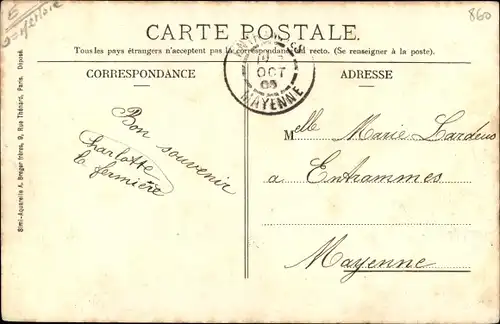 860
CARTE POSTALE.
Tous les pays étrangers n'acceptent pas la correspondance au recto. (Se renseigner à la poste).
CORRESPONDANCE
ADRESSE
OCT
05
MAYENNE
Bon souvenir
Charlotte
la fermière
Melle Marie Lardeus
a Entrammes
Mayenne
Simi-Aquarelle A. Breger frères, 9, Rue Thénard, Paris. Déposé.